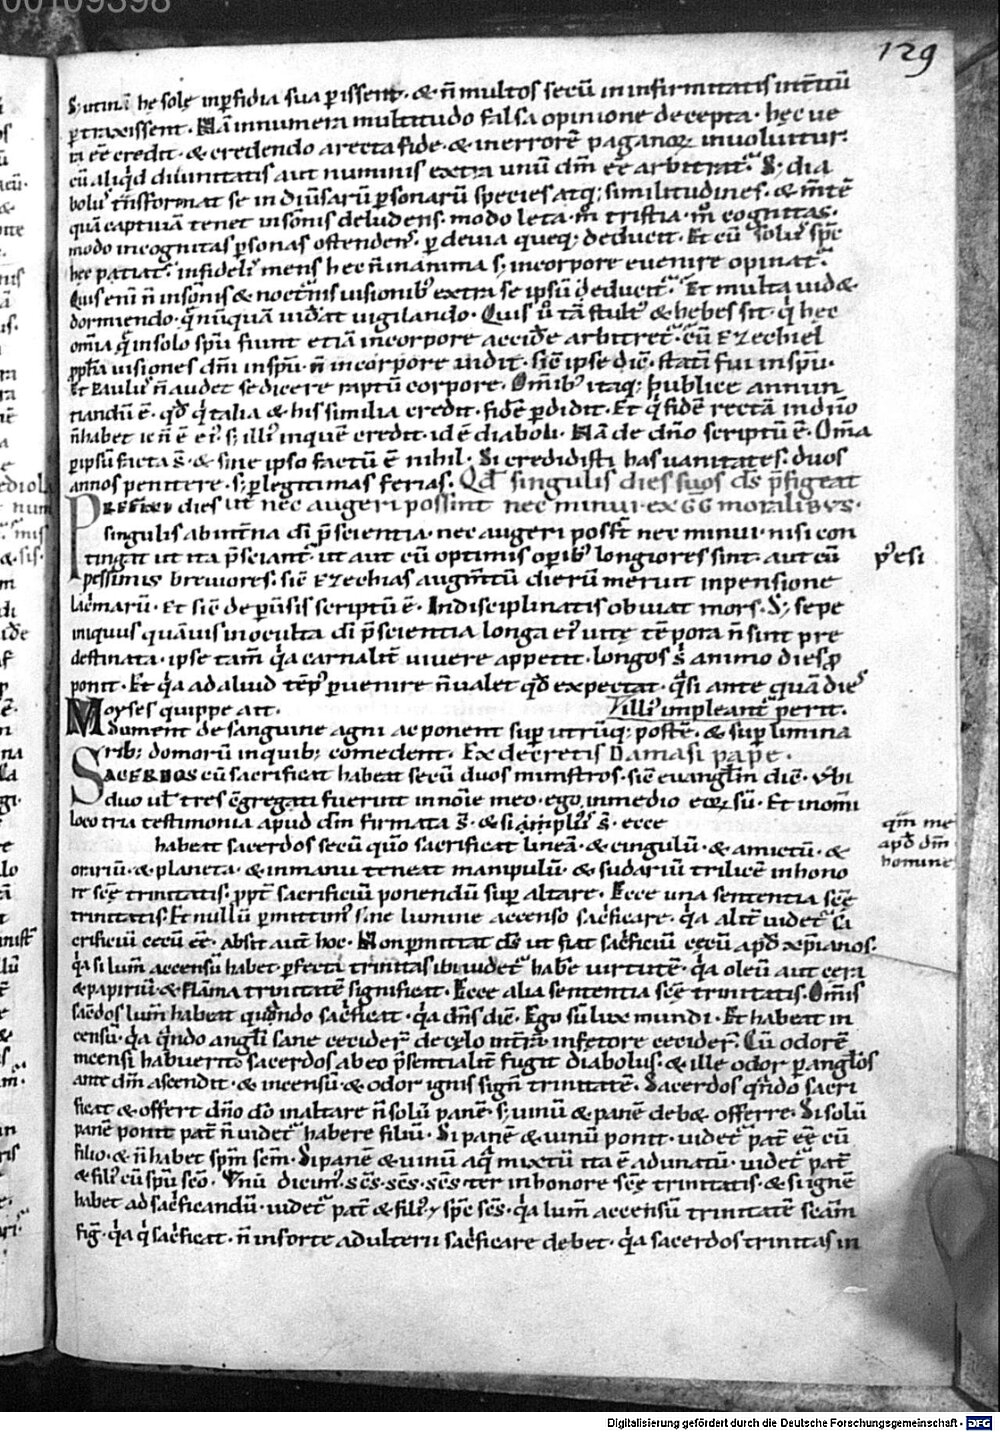 129
S; utinā hę solę inꝑfidia sua ꝑissent. & n̄ multos secū in infirmitatis intitū
ꝑtraxissent. Nā innumera multitudo falsa opinione decepta. hęc ue
ra eē credit. & credendo a recta fide. & in errorē paganoꝝ inuoluitur.
cū aliqd diuinitatis aut numinis extra unū dm̄ eē arbitrat᷑. S; dia
bolus t̄nsformat se in diūsarū ꝑsonarū species atq; similitudines. & m̄tē
quā captiuā tenet insōnis deludens. modo leta. m̊ tristia. m̊ cognitas.
modo incognitas ꝑsonas ostendens. ꝑ deuia queq; deducit. Et cū solus spc̄
hęc patiat᷑. infidelis mens hec n̄ in anima s; in corpore euenire opinat᷑.
Quis eni n̄ insōnis & nocturnis uisionib; extra se ipsū deducit᷑. Et multa uid&
dormiendo. q̄ nūquā uiderat uigilando. Quis ū tā stultus & hebes sit. q̇ hec
om̄ia q̄ in solo spū fiunt etiā in corpore accidere arbitret᷑. cū Ezechiel
ꝓph̄a uisiones dn̄i in spū. n̄ in corpore uidit. sic̄ ipse dic̄. statī fui in spū.
Et Paulus n̄ audet se dicere raptū corpore. Om̄ib; itaq; publice annun
tiandū ē. qd̄ q̇ talia & his similia credit. fidē ꝑdidit. Et q̇ fidē rectā in dn̄o
n̄ habet ic n̄ ē eius. s; illius in quē credit. id ē diaboli. Nā de dn̄o scriptū ē. Om̄a
ꝑ ipsū facta s̄. & sine ipso factū ē nihil. Si credidisti has uanitates. duos
annos penitere. s; ꝑ legitimas ferias. Qd singulis dies suos ds p̄figeat
Prefixi dies ut nec augeri possint nec minui. ex GG moralibus.
singulis ab int̄na di p̄scientia. nec augeri posst̄ nec minui. nisi con
tingat ut ita p̄sciant᷑. ut aut cū optimis oꝑib; longiores sint. aut cū
p̄'esi
pessimis breuiores. sic̄ Ezechias augm̄tū dierū meruit inpensione
lacrimarū. Et sic̄ de ꝑūsis scriptū ē. Indisciplinatis obuiat mors. S; sepe
iniquus quāuis in occulta di p̄scientia longa eius uitę tēpora n̄ sint pre
destinata. ipse tam̄ q̇a carnalit̄ uiuere appetit. longos s̄ animo dies ꝓ
ponit. Et q̇a ad aliud tēps ꝑuenire n̄ ualet qd̄ expectat. q̇si ante quā dies
Moyses quippe ait. illi impleant᷑ perit.
Sument de sanguine agni ac ponent suꝑ utrūq; postē. & suꝑ limina
rib; domorū in quib; comedent. Ex decretis Damasi pape.
Sacerdos cū sacrificat habeat secū duos ministros. sic̄ euanglīn dic̄. Vbi
duo uł tres c̄gregati fuerint in noīe meo. ego in medio eoꝝ sū. Et in om̄i
loco tria testimonia apud dm̄ firmata s̄. & si amplius s̄. ecce
qm̄ me
apd̄ dm̄
homine
habeat sacerdos secū quo sacrificat lineā. & cingulū. & amictū. &
orariū. & planeta. & in manu teneat manipulū. & sudariū trilicē in hono
re scę trinitatis. ꝓpt̄ sacrificiū ponendū suꝑ altare. Ecce una sententia scę
trinitatis. Et nullū ꝑmittimus sine lumine accenso sacrificare. q̇a alit̄ uidet᷑ sa
crificiū cecū eē. Absit aut̄ hoc. Non ꝑmittat ds̄ ut fiat sacrificiū cecū apd̄ xp̄ianos.
q̇a si lum̄ accensū habet. ꝑfecta trinitas ibi uidet᷑ habē uirtutē. q̇a oleū aut cera
& papiriū. & flāma trinitatē significat. Ecce alia sententia scę trinitatis. Om̄is
sacdos lum̄ habeat quando sacrificat. q̇a dn̄s dic̄. Ego sū lux mundi. Et habeat in
censū. q̇a q̇ndo angli sane cecider̄ de celo in t̄ra in fetore cecider̄. Cū odorē
incensi habuerit sacerdos ab eo p̄sentialit̄ fugit diabolus. & ille odor ꝑ anglos
ante dm̄ ascendit. & incensū & odor ignis sign̄ trinitatē. Sacerdos q̇ndo sacri
ficat & offert dn̄o do in altare n̄ solū panē. s; uinū & panē deb& offerre. Si solū
panē ponit pat̄ n̄ uidet᷑ habere filiū. Si panē & uinū ponit. uidet᷑ pat̄ eē cū
filio. & n̄ habet spm̄ scm̄. Si panē & uinū aq̄ mixtū ita ē adunatū. uidet᷑ pat̄
& filius cū spū sco. Vnū dicim. scs. scs. scs. ter in honore scę trinitatis. & si ignē
habet ad sacrificandū. uidet᷑ pat̄ & filius & spc̄ scs. q̇a lum̄ accensū trinitatē scām
fig̅. q̇a q̇ sacrificat. n̄ in sorte adulterii sacrificare debet. q̇a sacerdos trinitas in
Digitalisierung gefördert durch die Deutsche Forschungsgemeinschaft - DFG